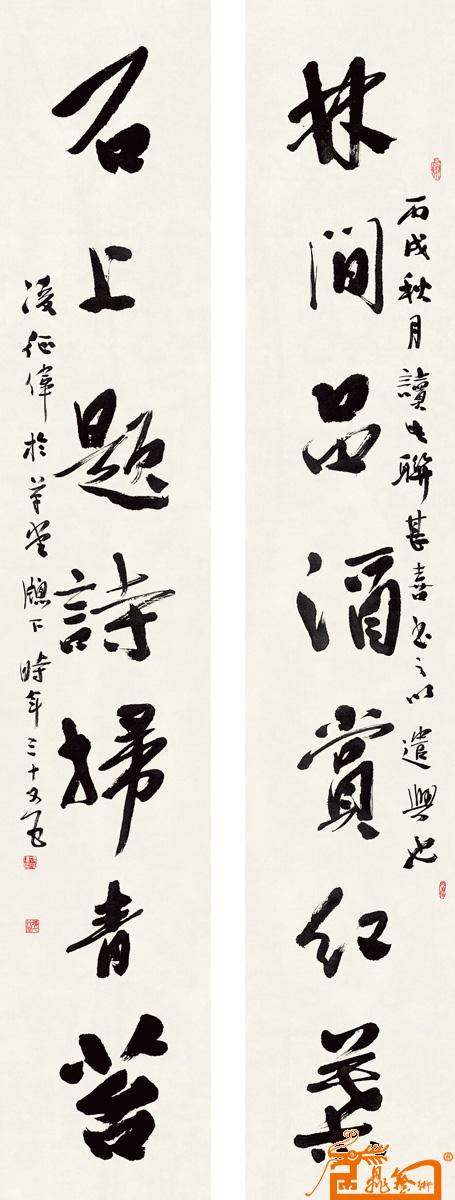 丙戌秋月讀此聯甚喜書之以遣興也
林間品酒賞紅葉
石上題詩掃青苔
凌征偉於草堂牕下時年三十又